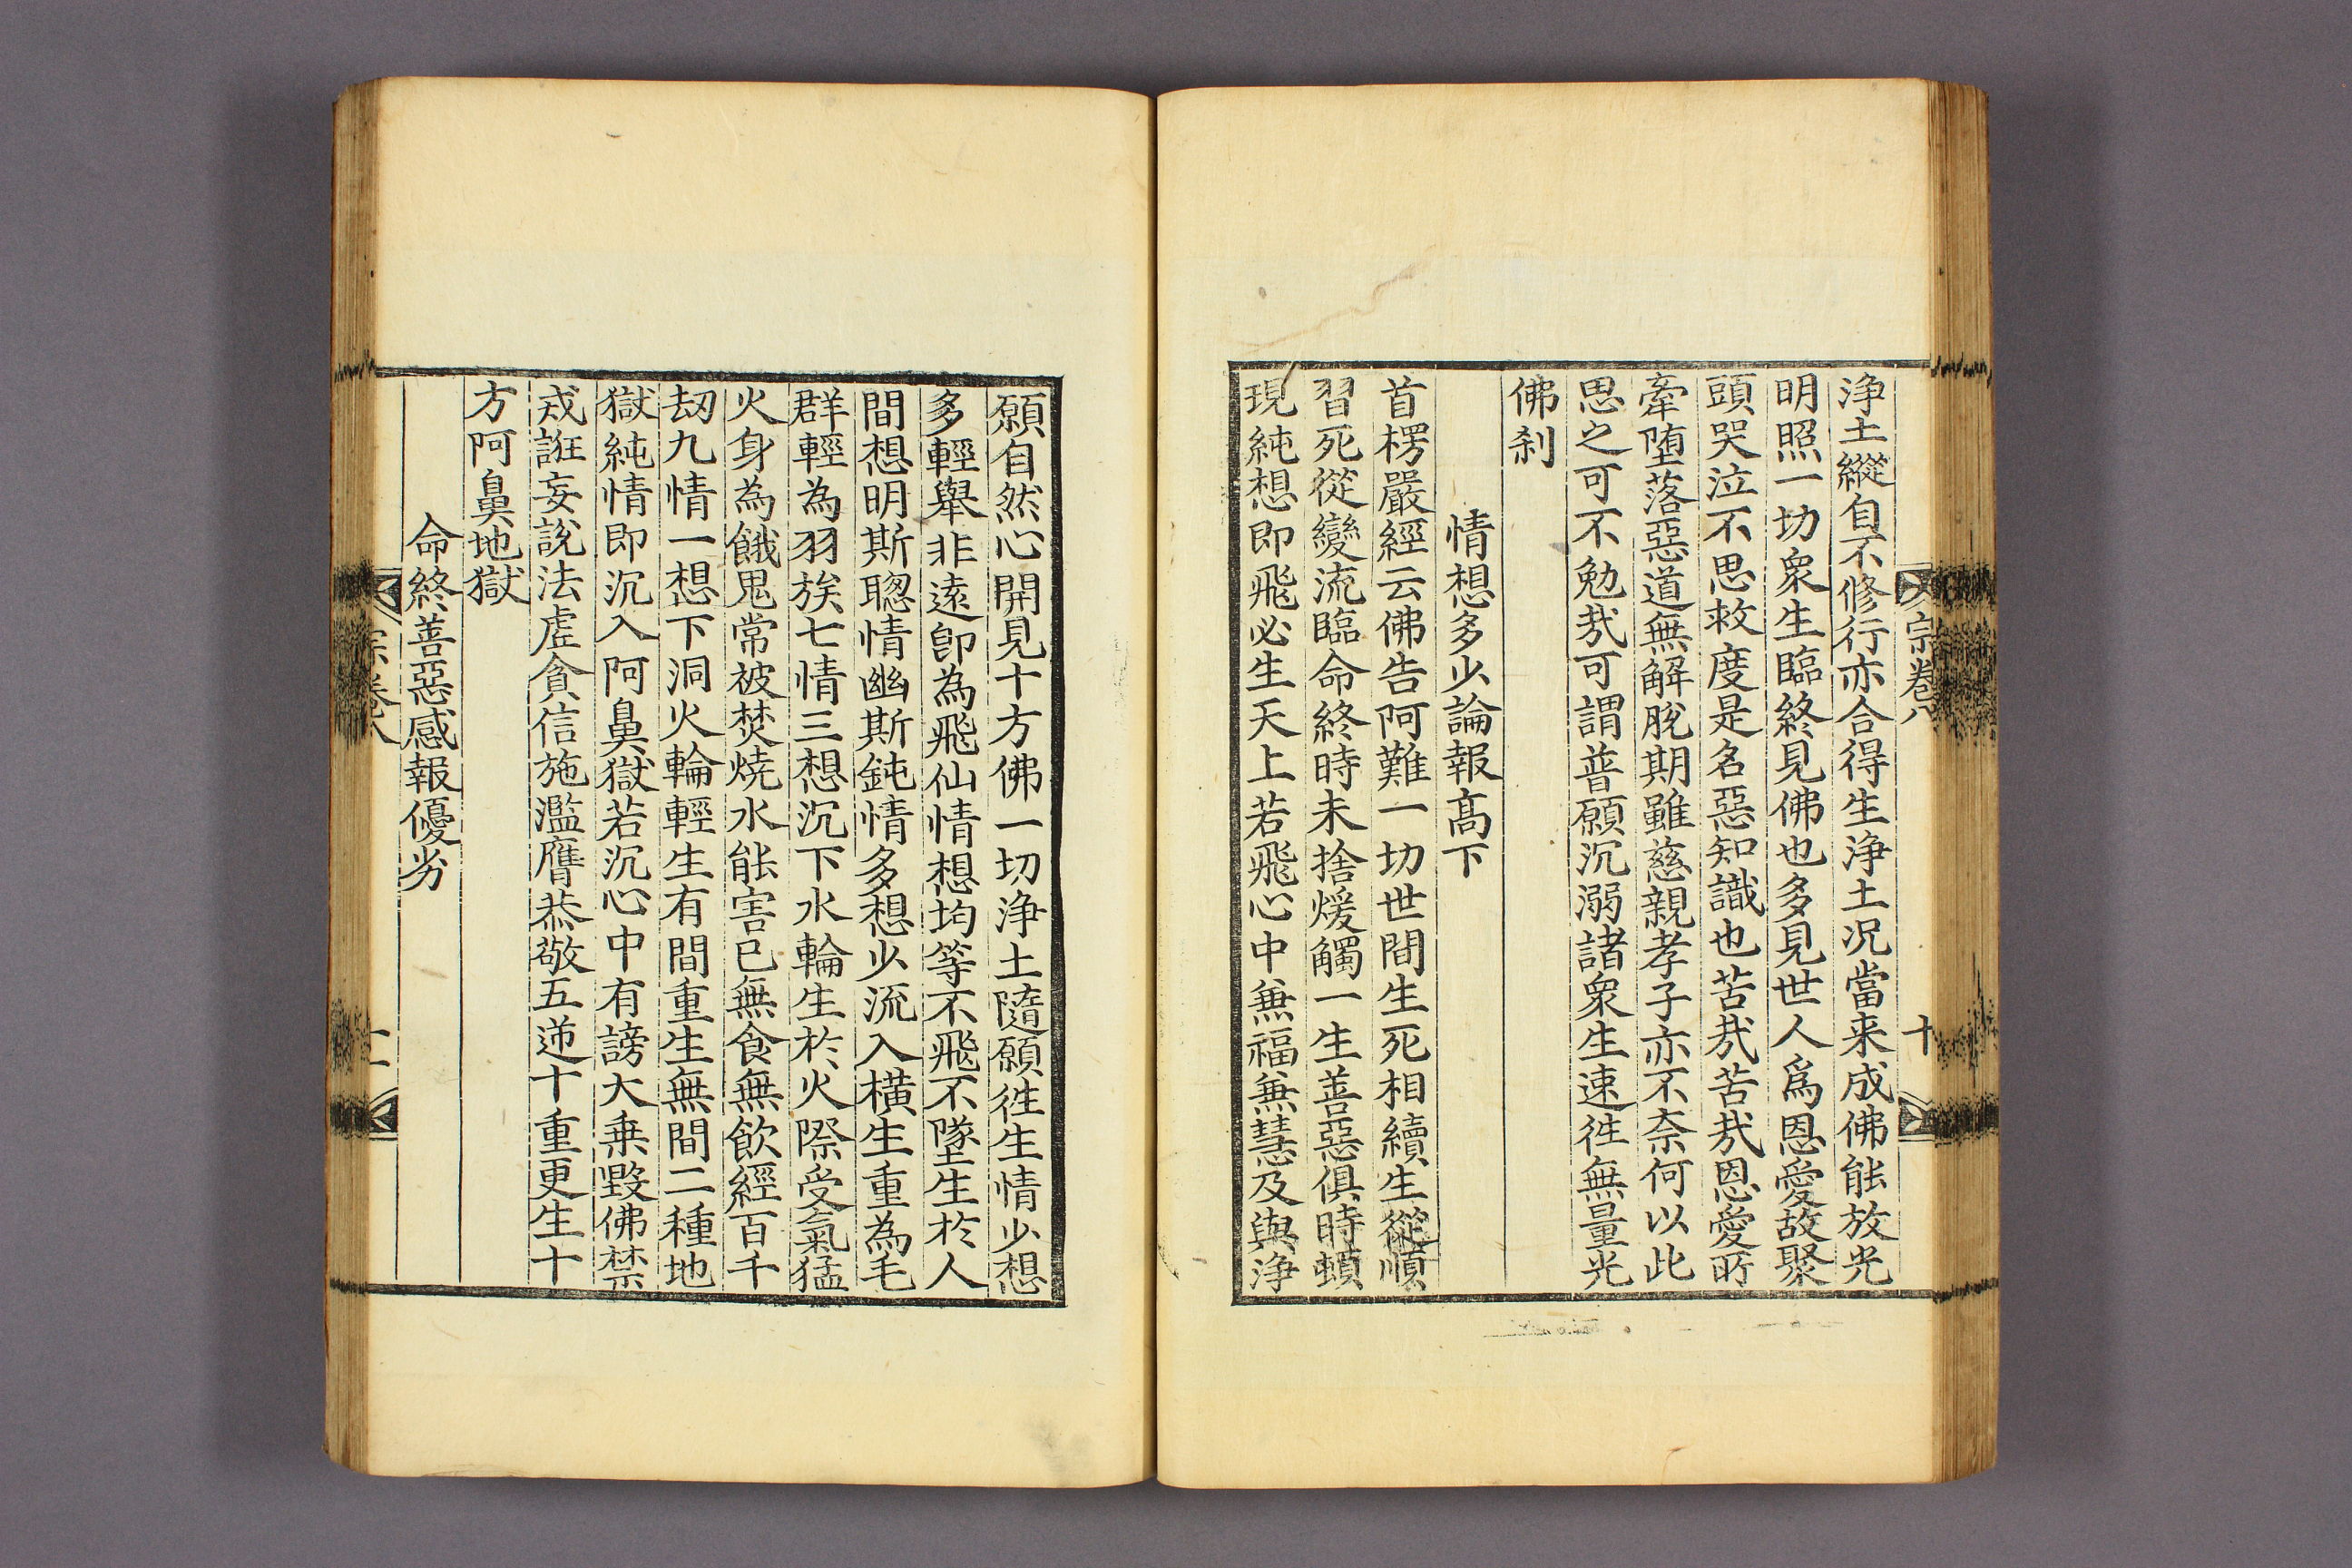 宗卷八
十
浄土縱自不修行亦合得生浄土况當来成佛能放光
明照一切衆生臨終見佛也多見世人爲恩愛故聚
頭哭泣不思救度是名惡知識也苦㢤苦㢤恩愛所
牽墮落惡道無解脫期雖慈親孝子亦不奈何以此
思之可不勉㢤可謂普願沉溺諸衆生速徃無量光
佛刹
情想多少論報髙下
首楞嚴經云佛告阿難一切世間生死相續生從順
習死從變流臨命終時未捨煖觸一生善惡俱時頓
現純想即飛必生天上若飛心中兼福兼慧及與浄
願自然心開見十方佛一切浄土隨願徃生情少想
多輕舉非遠卽為飛仙情想均等不飛不墜生於人
間想明斯聰情幽斯鈍情多想少流入橫生重為毛
群輕為羽族七情三想沉下水輪生於火際受氣猛
火身為餓鬼常被焚燒水能害已無食無飲經百千
刼九情一想下洞火輪輕生有間重生無間二種地
獄純情即沉入阿鼻獄若沉心中有謗大乗毀佛禁
戒誑妄說法虛貪信施濫膺恭敬五逆十重更生十
方阿鼻地獄
命終善惡感報優劣
宗卷八
十一